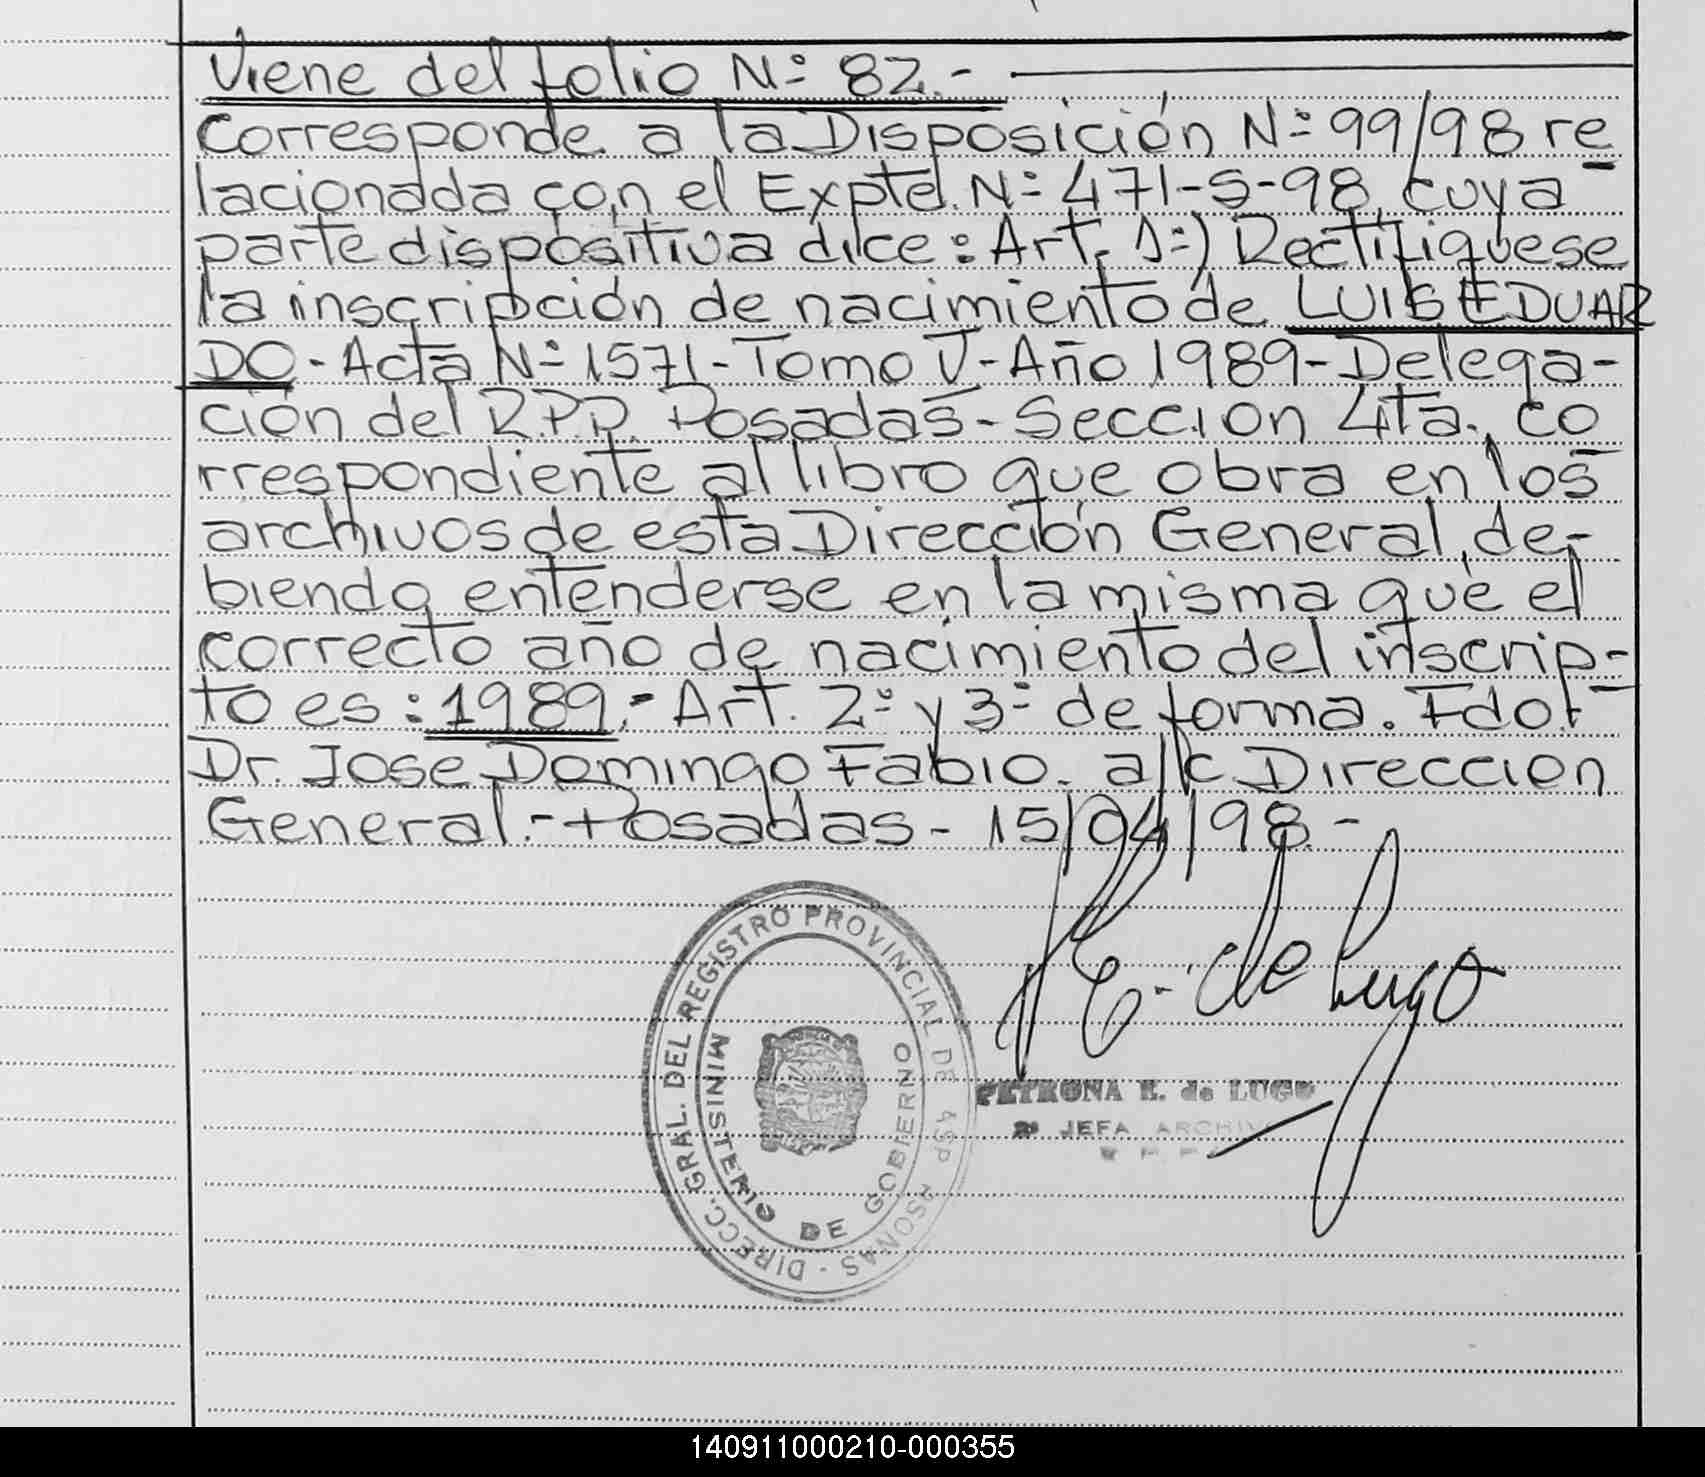 Viene del folio Nº 82.-
Corresponde a la Disposición Nº 99/98 re
lacionada con el Expte. Nº 471-S-98, cuya
parte dispositiva dice: Art. 1º) Rectifíquese
la inscripción de nacimiento de LUIS EDUAR
DO - Acta Nº 1571 - Tomo V - Año 1989 - Delega-
ción del R.P.P. Posadas - Seccion 4ta., co
rrespondiente al libro que obra en los
archivos de esta Dirección General, de-
biendo entenderse en la misma que el
correcto año de nacimiento del inscrip-
to es: 1989.- Art. 2º y 3º de forma. Fdo:
Dr. Jose Domingo Fabio. a/c Direccion
General.- Posadas - 15/04/98.-
E. de Lugo
DIRECC. GRAL. DEL REGISTRO PROVINCIAL DE LAS PERSONAS
MINISTERIO DE GOBIERNO
PETRONA E. de LUGO
JEFA ARCHIVO
140911000210-000355